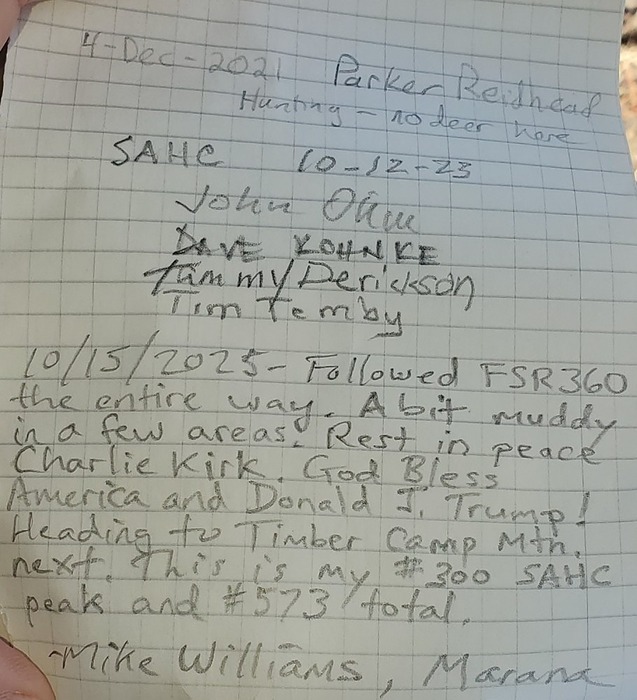 4-Dec-2021 Parker Reidhead
Hunting - no deer here
SAHC 10-12-23
John
DAVE KOHNKE
Tammy Derickson
Tim Temby
10/15/2025- Followed FSR360
the entire way. A bit muddy
in a few areas. Rest in peace
Charlie Kirk. God Bless
America and Donald J. Trump!
Heading to Timber Camp Mtn.
next. This is my #300 SAHC
peak and #573 total.
-Mike Williams, Marana